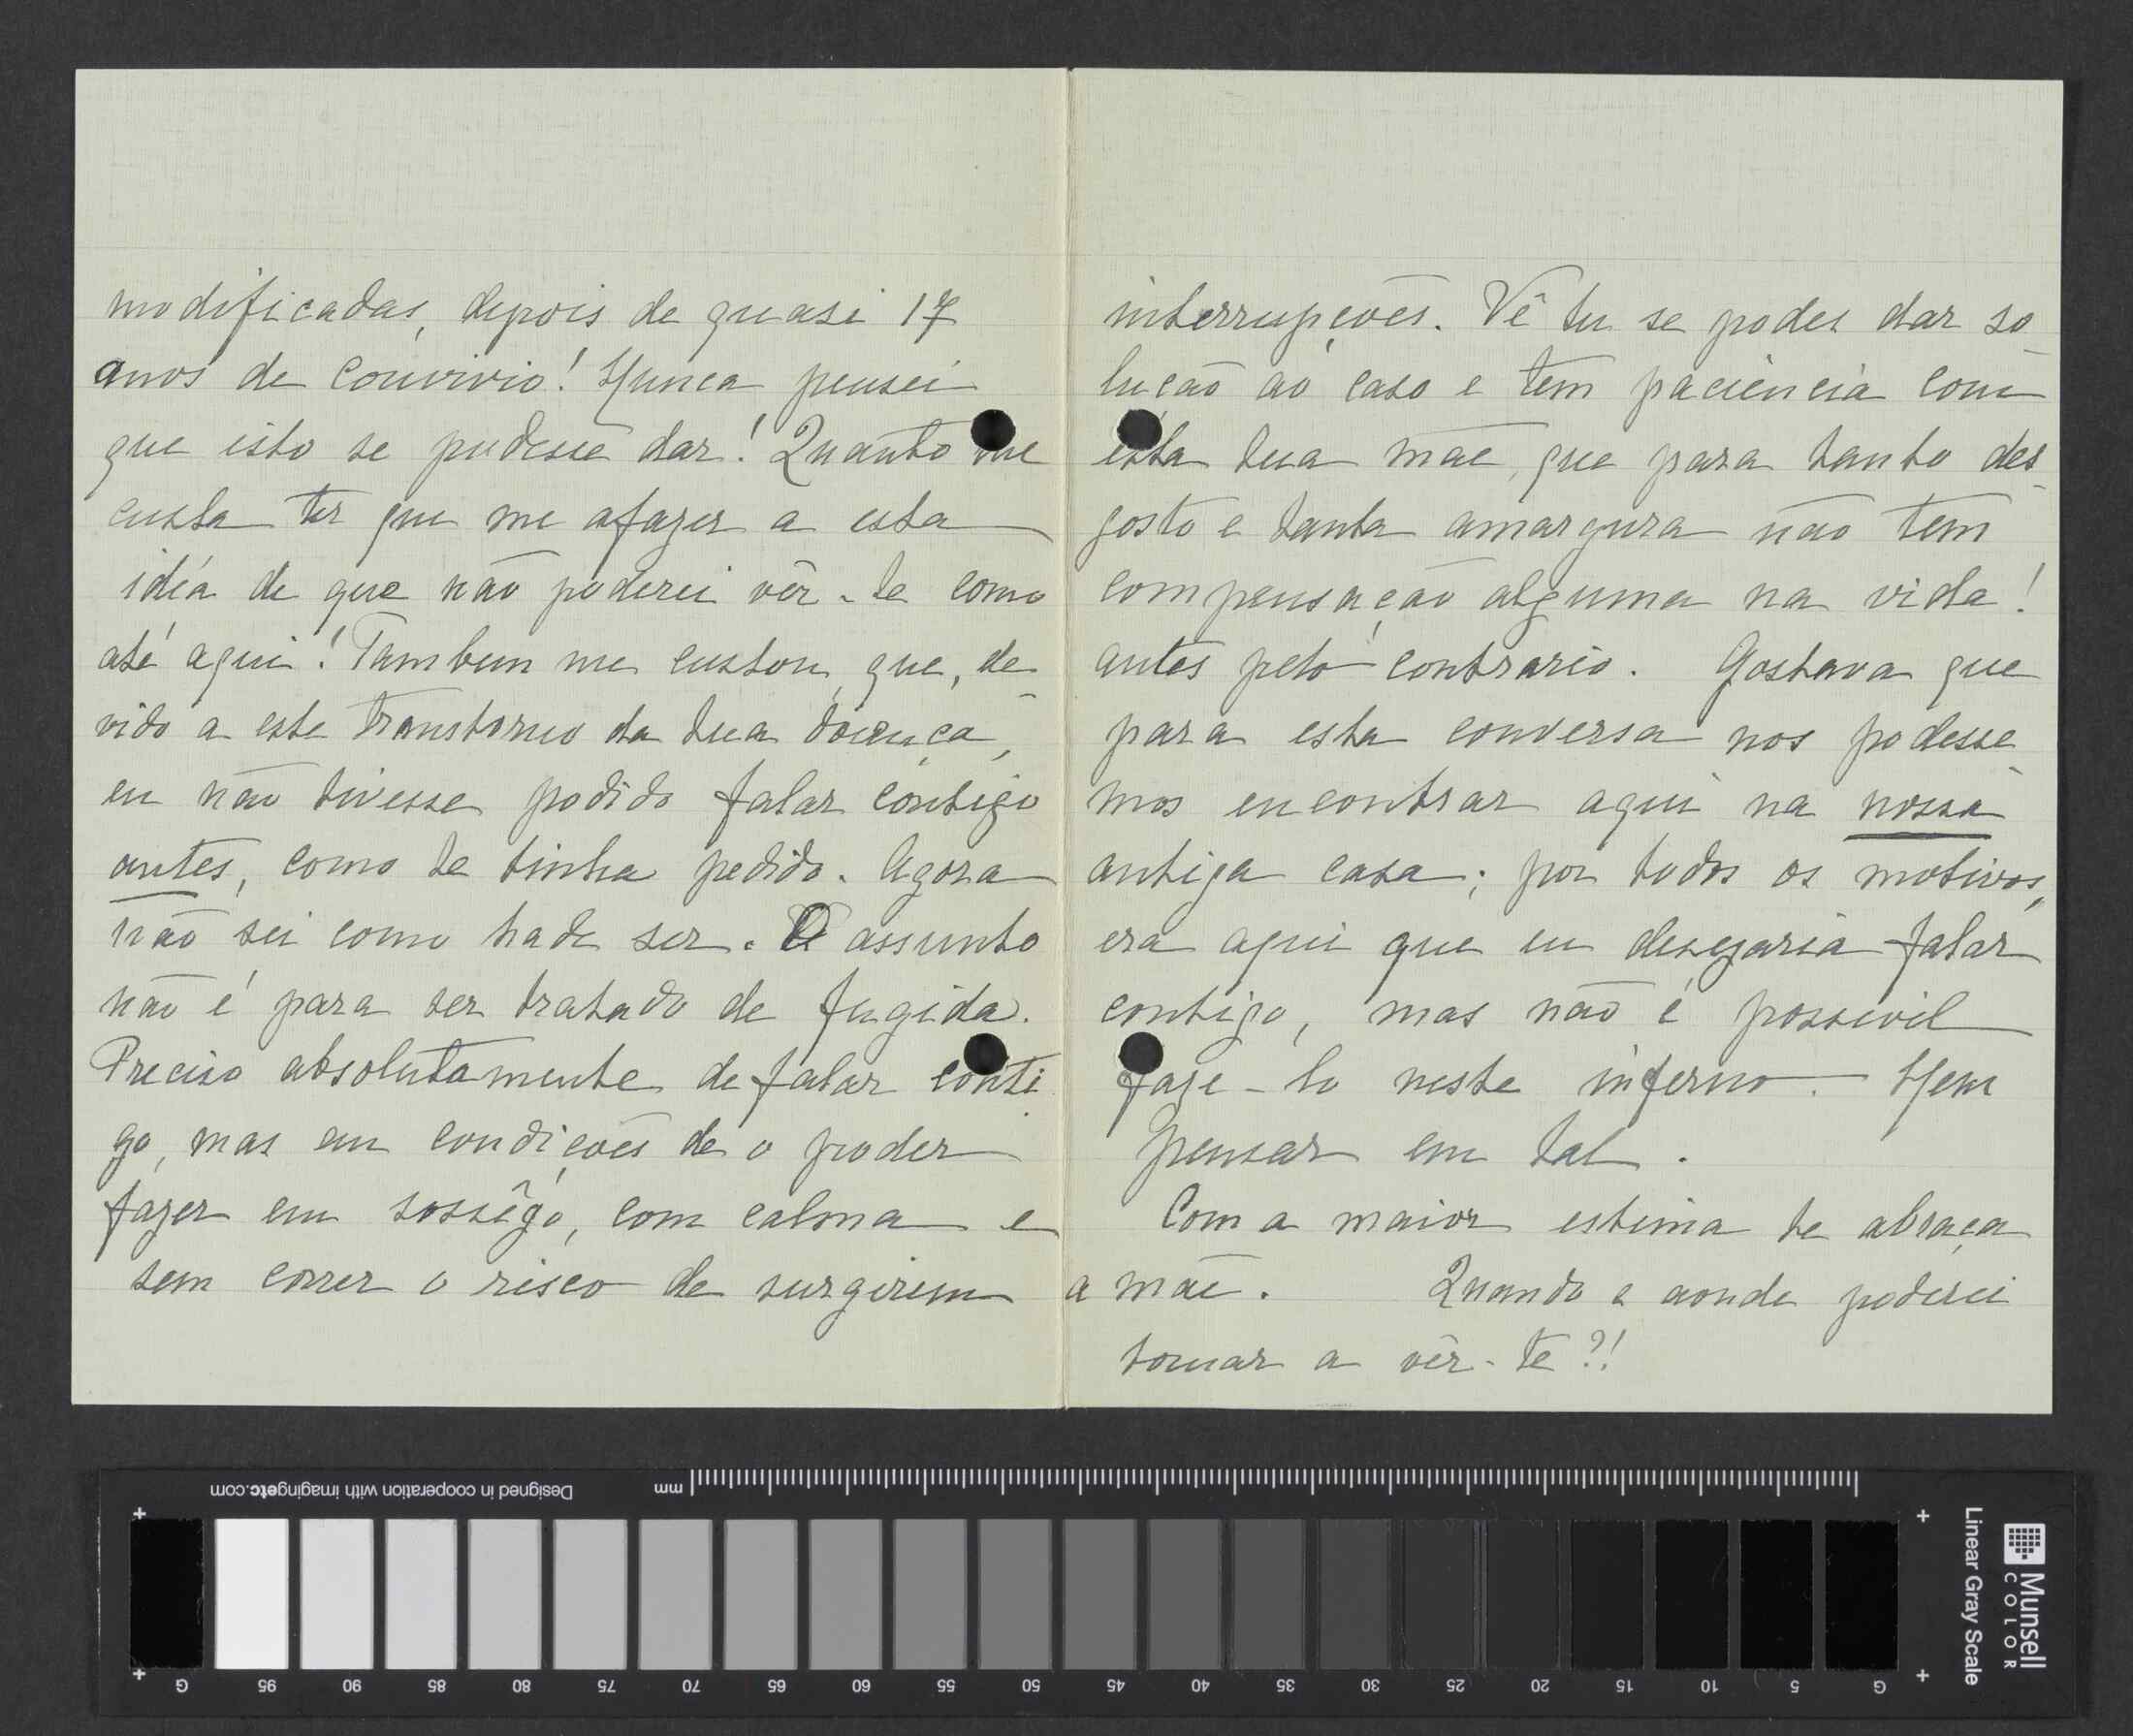 modificadas, depois de quasi 17
anos de convivio! Nunca pensei
que isto se pudesse dar! Quanto me
custa ter que me afazer a esta
idéa de que não poderei vêr-te como
até aqui! Tambem me custou que, de-
vido a este transtorno da tua doença,
eu não tivesse podido falar contigo
antes, como te tinha pedido. Agora
não sei como hade ser. O assunto
não é para ser tratado de fugida.
Preciso absolutamente de falar conti-
go, mas em condições de o poder
fazer em sossêgo, com calma e
sem correr o risco de surgirem
interrupções. Vê tu se podes dar so-
lução ao caso e tem paciencia com
esta tua mãe, que para tanto des-
gosto e tanta amargura não tem
compensação alguma na vida!
antes pelo contrario. Gostava que
para esta conversa nos podesse-
mos encontrar aqui na nossa
antiga casa; por todos os motivos,
era aqui que eu desejaria falar
contigo, mas não é possivil
faze-lo neste inferno. Nem
pensar em tal.
Com a maior estima te abraça
a mãe. Quando e aonde poderei
tornar a vêr-te?!
Designed in cooperation with imagingetc.com
mm
G 95 90 85 80 75 70 65 60 55 50 45 40 35 30 25 20 15 10 5 G
Munsell
COLOR
Linear Gray Scale